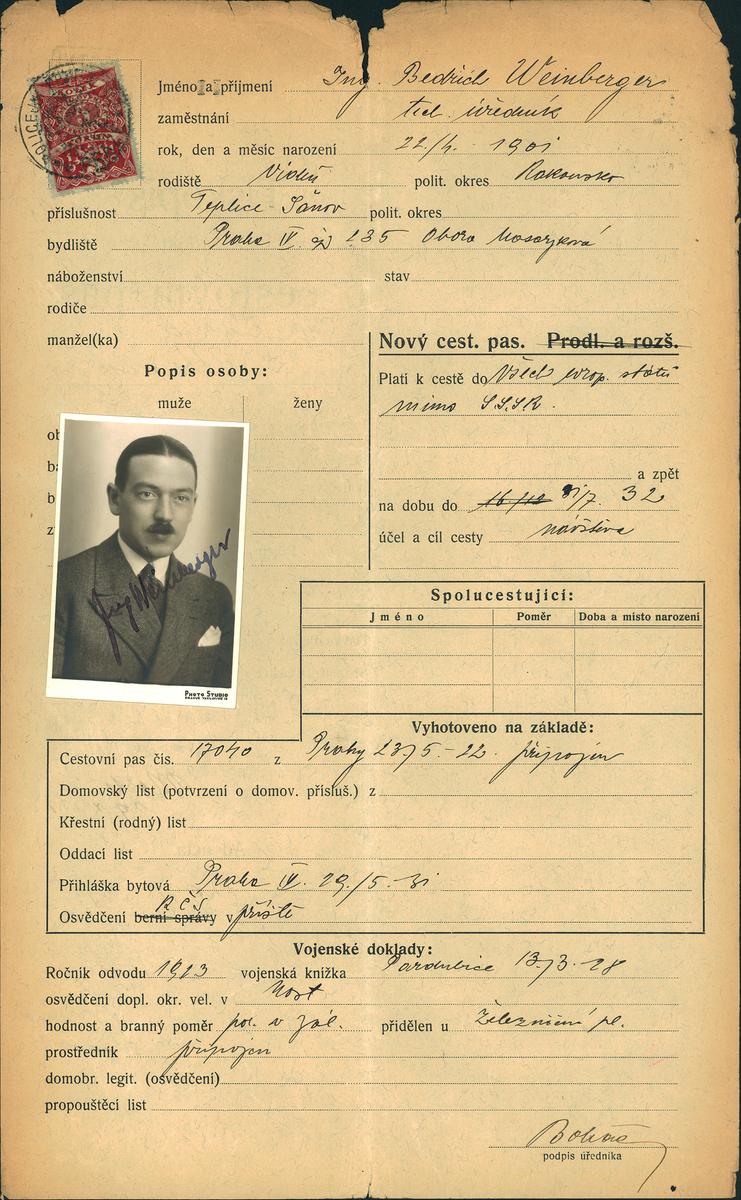 Jméno a příjmení Ing. Bedřich Weinberger
zaměstnání tech. úředník
rok, den a měsíc narození 22/4. 1901
rodiště Vídeň polit. okres Rakousko
příslušnost Teplice-Šanov polit. okres
bydliště Praha IV čp 235 Obora Masaryková
náboženství stav
rodiče
manžel(ka)
Nový cest. pas. Prodl. a rozš.
Popis osoby:
Platí k cestě do Všech evrop. států
muže ženy
mimo S.S.S.R.
a zpět
na dobu do 16/12 31/7. 32
účel a cíl cesty návštěva
Ing Weinberger
PHOTO STUDIO
Spolucestující:
Jméno Poměr Doba a místo narození
Vyhotoveno na základě:
Cestovní pas čís. 17040 z Prahy 23/5.-22. připojen
Domovský list (potvrzení o domov. přísluš.) z
Křestní (rodný) list
Oddací list
Přihláška bytová Praha IV. 29./5.-31
Osvědčení berní správy v příště
Vojenské doklady:
Ročník odvodu 1923 vojenská knížka Pardubice 13./3.-28
osvědčení dopl. okr. vel. v Most
hodnost a branný poměr por. v zál. přidělen u Železniční pl.
prostředník připojen
domobr. legit. (osvědčení)
propouštěcí list
podpis úředníka